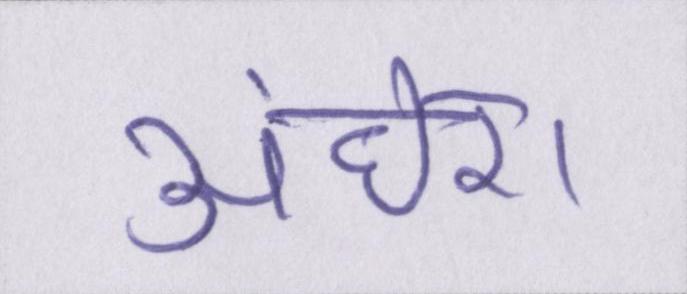 अंधेरा